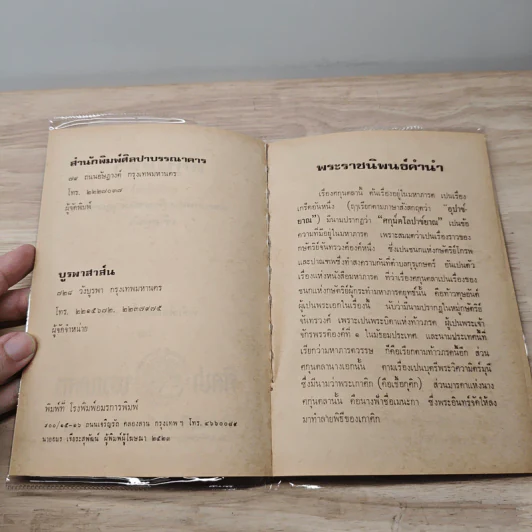 สำนักพิมพ์ศิลปาบรรณาคาร
๗๙ ถนนอัษฎางค์ กรุงเทพมหานคร
โทร. ๒๒๒๗๐๓๗
ผู้จัดพิมพ์
บูรพาสาส์น
๗๒๘ วังบูรพา กรุงเทพมหานคร
โทร. ๒๒๑๕๖๗๒, ๒๒๓๗๙๗๕
ผู้จัดจำหน่าย
พิมพ์ที่ โรงพิมพ์อมรการพิมพ์
๑๐๐/๑๕-๑๖ ถนนเจริญรัถ คลองสาน กรุงเทพ ฯ โทร. ๔๖๖๐๐๘๙
นายอมร เจียระสุพัฒน์ ผู้พิมพ์ผู้โฆษณา ๒๕๒๓
พระราชนิพนธ์คำนำ
เรื่องศกุนตลานี้ ต้นเรื่องอยู่ในมหาภารต เป็นเรื่อง
เกร็ดอันหนึ่ง (ฤๅเรียกตามภาษาสังสกฤตว่า "อุปาข์-
ยาณ") มีนามปรากฏว่า "ศกุนตโลปาข์ยาณ" เป็นข้อ
ความที่มีอยู่ในมหาภารต เพราะสมมตว่าเป็นเรื่องราวของ
กษัตริย์จันทรวงศ์องค์หนึ่ง ซึ่งเป็นชนกแห่งกษัตริย์โกรพ
และปาณฑพซึ่งทำสงครามกันที่ตำบลกุรุเกษตร์ อันเป็นตัว
เรื่องแห่งหนังสือมหาภารต ที่ว่าเรื่องศกุนตลาเป็นเรื่องของ
ชนกแห่งกษัตริย์ผู้กระทำมหาภารตยุทธ์นั้น คือท้าวทุษยันต์
ผู้เป็นพระเอกในเรื่องนั้น นับว่ามีนามปรากฏในหมู่กษัตริย์
จันทรวงศ์ เพราะเป็นพระบิดาแห่งท้าวภรต ผู้เป็นพระเจ้า
จักรพรรดิองค์ที่ ๑ ในมัธยมประเทศ และนามประเทศนี้ที่
เรียกว่ามหาภารตวรรษ ก็คือเรียกตามท้าวภรตนี้อีก ส่วน
ศกุนตลานางเอกนั้น ตามเรื่องเป็นบุตรีพระวิศวามิตร์มุนี
ซึ่งมีนามว่าพระเกาศิก (คือเชื้อกุศิก) ส่วนมารดาแห่งนาง
ศกุนตลานั้น คือนางฟ้าชื่อเมนะกา ซึ่งพระอินทร์จัดให้ลง
มาทำลายพิธีของเกาศิก